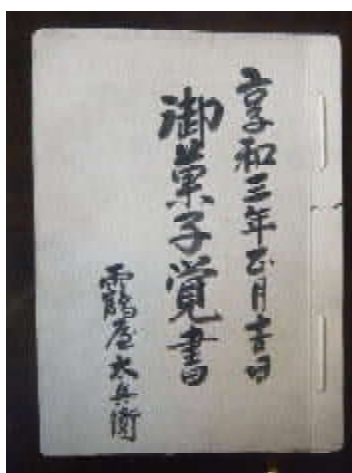 享和三年正月吉日
御菓子覚書
靏屋太兵衛